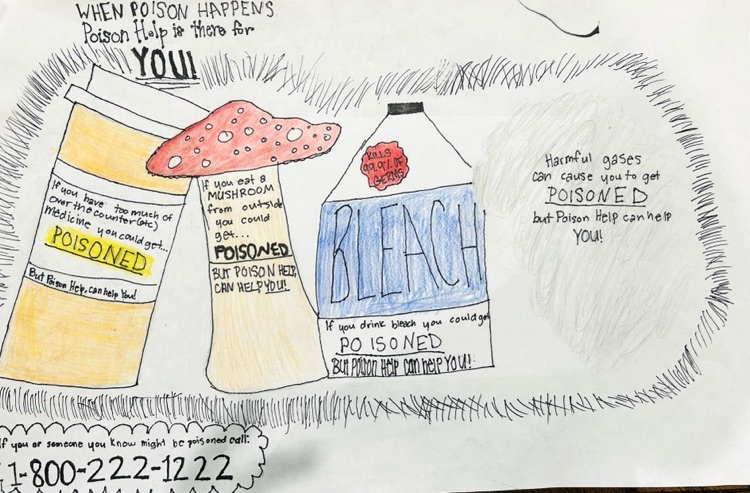 WHEN POISON HAPPENS
Poison Help is there for
YOU!
If you have too much of
over the counter(otc)
medicine you could get...
POISONED
But Poison Help, can help You!
If you eat a
MUSHROOM
from outside
you could
get...
POISONED
BUT POISON HELP,
CAN HELP YOU!
KILLS
99.9% OF
GERMS
BLEACH
If you drink bleach you could get
POISONED
But Poison Help can help YOU!
Harmful gases
can cause you to get
POISONED
but Poison Help can help
YOU!
If you or someone you know might be poisoned call:
1-800-222-1222